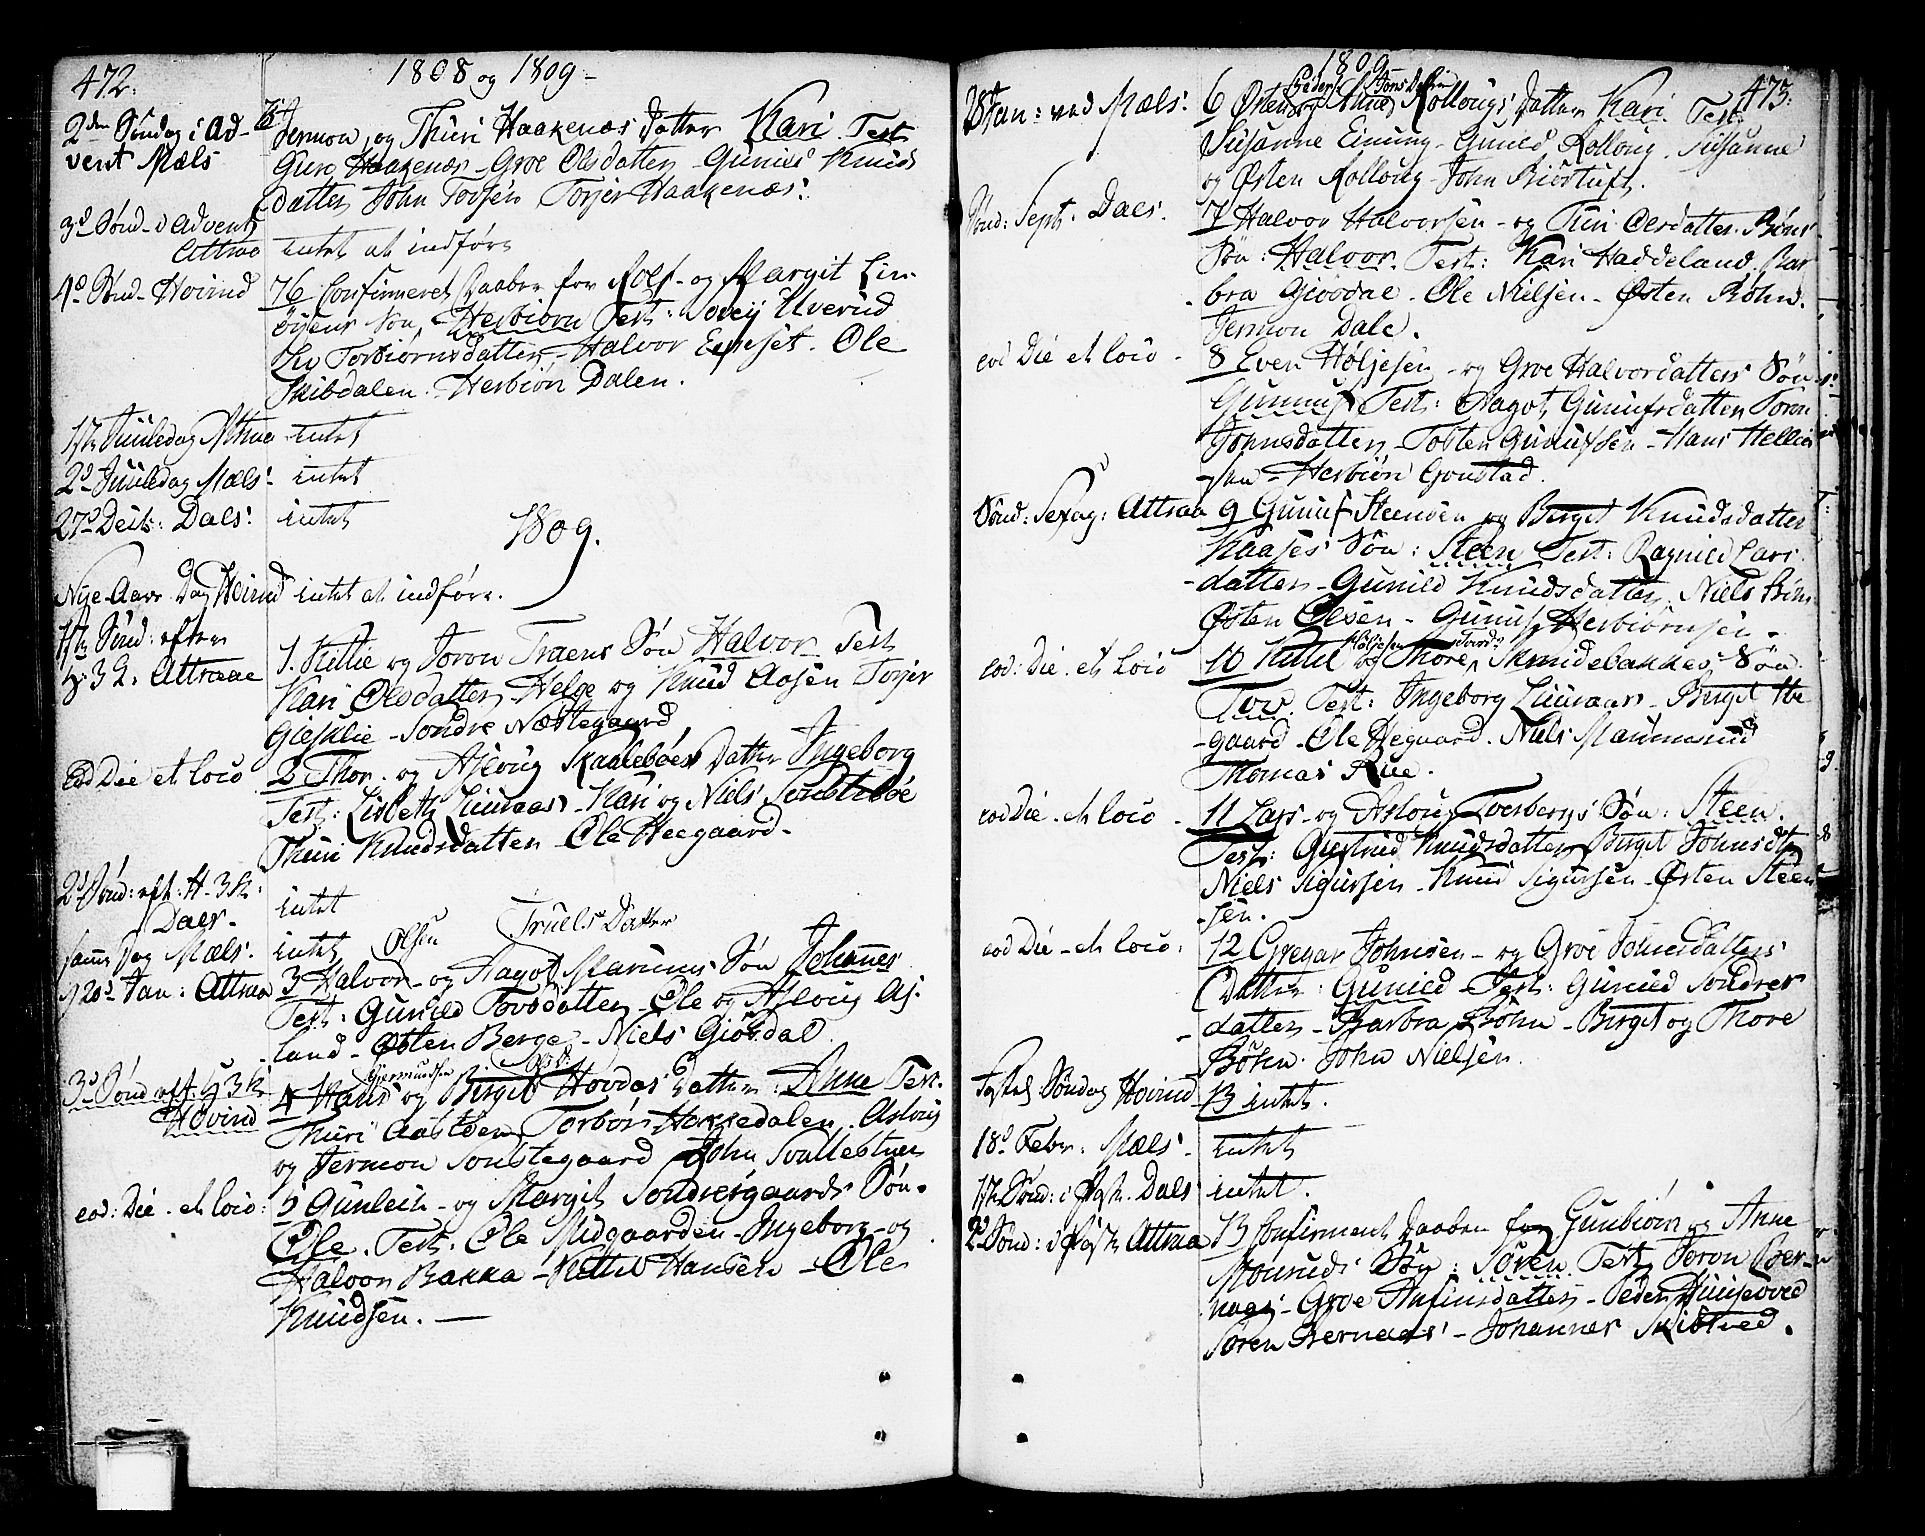 472.
1808 og 1809 –
2den Søndag i Ad-
vent Mæls
75
Jermon og Thuri Haakenæs Datter Kari. Test
Gun. Haakenæs – Groe Olsdatter – Gunild Knuds
datter John Tovsen Torjer Haakenæs.
3d Sønd – i Advent
Attraa intet at indføre
4d Sønd – Hovind
76 Confirmeret Daaben for Rolf – og Margit Lin-
øyens Søn – Herbiørn Test: Sovey Uverud
Torbiørnsdatter – Halvor – Ole
Skibdalen. Herbiør Dalen.
1ste Juuledag Attraa intet
2d Juuledag Mæls: intet
27d Decb: Dals: intet
1809.
Nye-Aars Dag Hovind intet at indføre.
1ste Sønd: efter
H 3 K. Attraae
1. Kittil og Joron Traens Søn Halvor Test
Kari Olsdatter – Helge og Knud Aasen Torjer
Gieslie – Sondre Næstegaard
eod Die et loco
2 Thor. og Asloug Skaaleboes Datter Ingeborg
Test: Lisbeth Luuraas – Kari og Niels Sønsteböe
Thuri Knudsdatter – Ole Heegaard –
2d Sønd: eft: H – 3 K:
Dals –
intet
samme Dag Mæls. intet
Olsen Truels Datter
d 20d Jan: Attraa
3 Halvor – og Aagot Marums Søn Johannes
Test: Gunild Tovsdatter – Ole og Asloug As-
land – Østen Berge – Niels Giösdal.
3d Sønd eft: H 3 K
Hovind
Giermundsen
4 Hans og Birget Hovdes Datter: Anne Test.
Thuri Aastöen Torbör Hakkedalen. Asloug
og Jermon Sønstegaard John
eod: Die – et loco:
5 Gunleik – og Margit Søndregaards Søn.
Ole. Test. Ole Midgaarden – Ingeborg – og
Halvor Bakka – Kittil Hansen – Ole
Knudsen. —
1809
473.
28 Jan: ved Mæls:
Peders Jonsdatter
6 Østen og Anne Rollougs Datter Kari. Test:
Susanne Einung – Gunild Rolloug. Susanne
og Østen Rolloug – John Biortuft.
Sønd: Sept. Dals.
7 Halvor Halvorsen – og Turi Olsdatter Böns
Søn: Halvor. Test: Kari Haddeland Bar
bra Giosdal – Ole Nielsen – Østen Böhn.
Jermon Dale.
eod Die et loco –
8 Even Høljesen – og Groe Halvorsdatters Søn
Gunnuf Test: Aagot Gunufsdatter Joron
Johnsdatter – Tosten Gunufsen – Hans Hellie
– Herbiörn Gonstad.
Sønd: Sexag: Attraa
9 Gunuf Steensen og Berget Knudsdatter
Kaases Søn: Steen Test: Ragnild Lars
datter – Gunild Knudsdatter, Niels Bön
Østen Olsen – Gunuf Herbiörnsen.
eod: Die. et loco
Höljesen Tovsd:
10 Kittil og Thore Skmidebakkes Søn
Tov. Test: Ingeborg Luuraas – Birget He
– gaard – Ole Hegaard. Niels Marumsrud
Thomas Rue.
eod Die – et loco –
11 Lars – og Asloug Tverbergs Søn: Steen.
Test: Giertrud Knudsdatter Birget Johnsdtr
Niels Sigursen – Knud Sigursen – Østen Steen
– sen.
eod Die – et loco:
12 Gregar Johnsen – og Groe Johnsdatters
Datter: Gunild – Test: Gunild Sondres
– datter – Barbra Böhn – Birget og Thore
Böhn. John Nielsen.
Fastel Søndag Hovind
13 intet.
18d Febr: Mæls: intet
1ste Sønd: i Fast. Dals intet.
2d Sønd: i Fast Attraa
13 Confirmeret Daaben for Gunbiörn og Anne
Mouruds Søn: Sören. Test Joron Ber-
naas – Groe Anfinsdatter – Peder
Sören Bernaas – Johannes Skibtved.